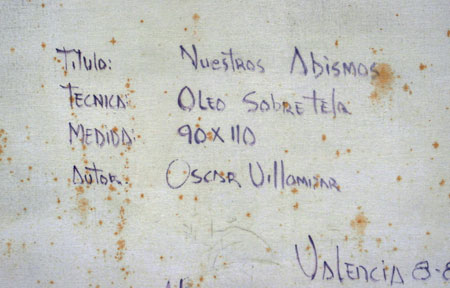 Titulo: Nuestros Abismos
Tecnica: Oleo Sobre tela
Medida: 90 X 110
Autor: Oscar Villamizar
Valencia